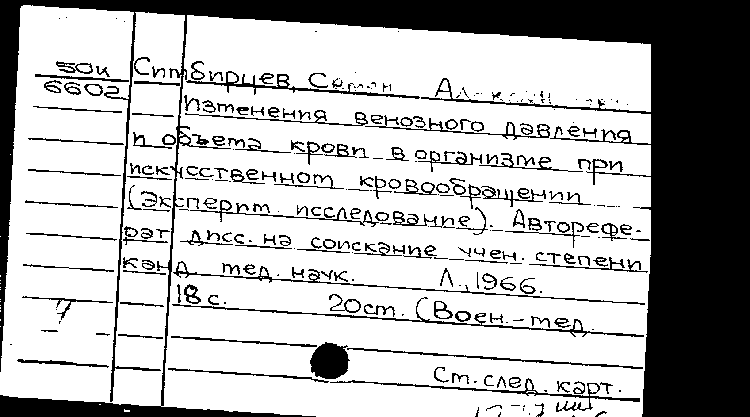 50к Симбирцев, Семен
6602
Изменения венозного давления
и объема крови в организме при
искусственном кровообращении
(Эксперим. исследование). Авторефе-
рат дисс. на соискание учен. степени
канд. мед. наук. Л., 1966.
18 с. 20 см. (Воен.-мед.
Ст. след. карт.